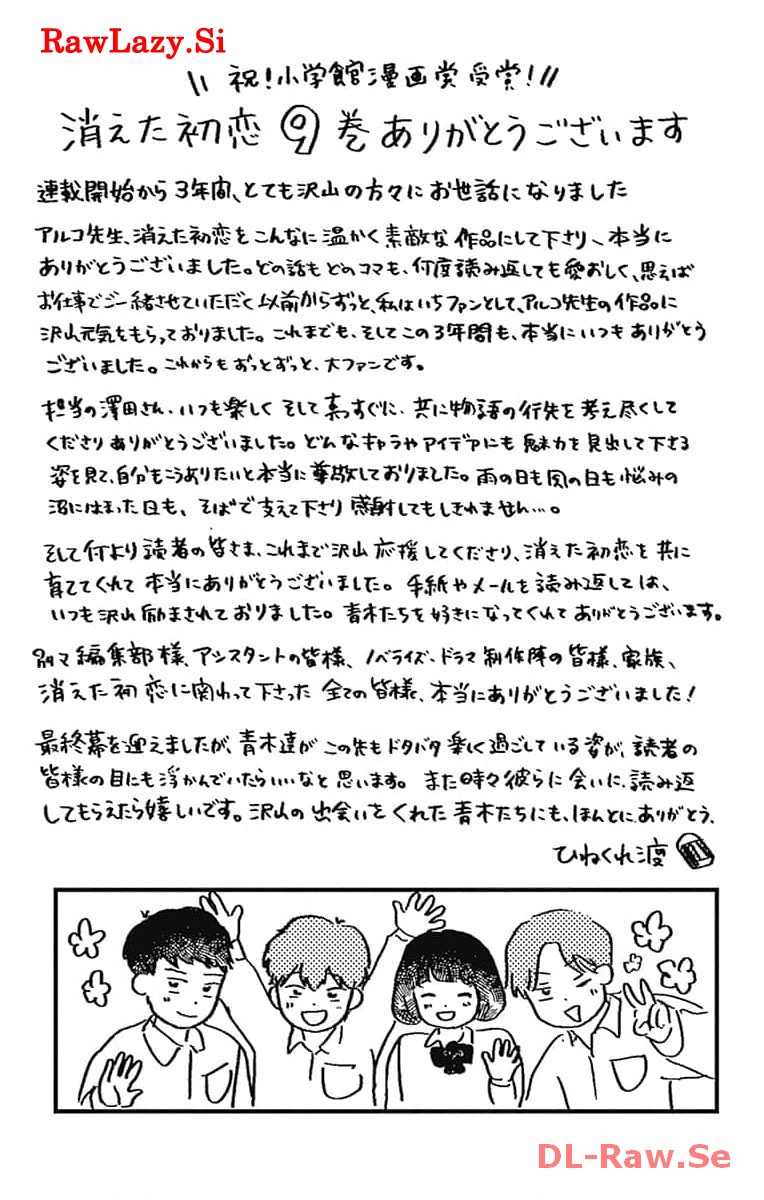 RawLazy.Si
\\ 祝!小学館漫画賞受賞!//
消えた初恋⑨巻ありがとうございます
連載開始から3年間、とても沢山の方々にお世話になりました
アルコ先生、消えた初恋をこんなに温かく素敵な作品にして下さり、本当に
ありがとうございました。どの話もどのコマも、何度読み返しても愛おしく、思えば
お仕事でご一緒させていただく以前からずっと、私はいちファンとして、アルコ先生の作品に
沢山元気をもらっておりました。これまでも、そしてこの3年間も、本当にいつもありがとう
ございました。これからもずっとずっと、大ファンです。
担当の澤田さん、いつも楽しくそして真っすぐに、共に物語の行先を考え尽くして
くださりありがとうございました。どんなキャラやアイデアにも魅力を見出して下さる
姿を見て、自分もこうありたいと本当に尊敬しておりました。雨の日も風の日も悩みの
沼にはまった日も、そばで支えて下さり感謝してもしきれません…。
そして何より読者の皆さま、これまで沢山応援してくださり、消えた初恋を共に
育ててくれて本当にありがとうございました。手紙やメールを読み返しては、
いつも沢山励まされておりました。青木たちを好きになってくれてありがとうございます。
別マ編集部様、アシスタントの皆様、ノベライズ・ドラマ制作陣の皆様、家族、
消えた初恋に関わって下さった全ての皆様、本当にありがとうございました!
最終幕を迎えましたが、青木達がこの先もドタバタ楽しく過ごしている姿が、読者の
皆様の目にも浮かんでいたらいいなと思います。また時々彼らに会いに、読み返
してもらえたら嬉しいです。沢山の出会いをくれた青木たちにも、ほんとにありがとう、
ひねくれ渡
DL-Raw.Se